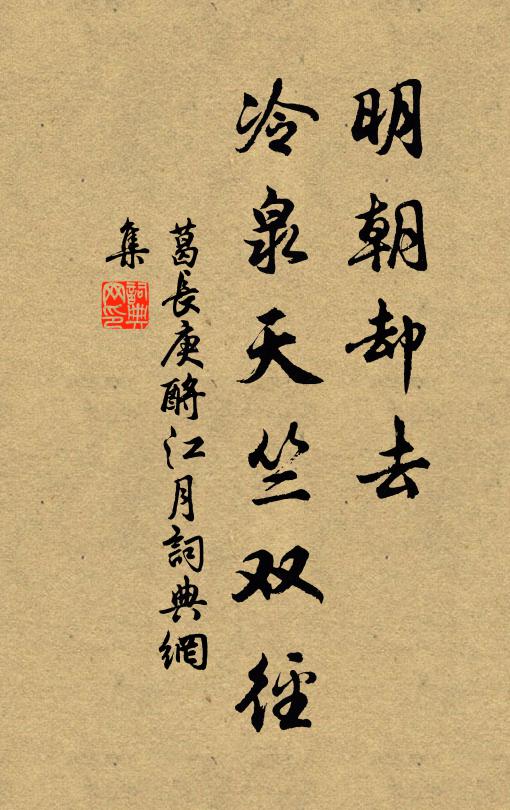 明朝却去
冷泉天竺双径
葛長庚酹江月詞典網
集
詞典网印